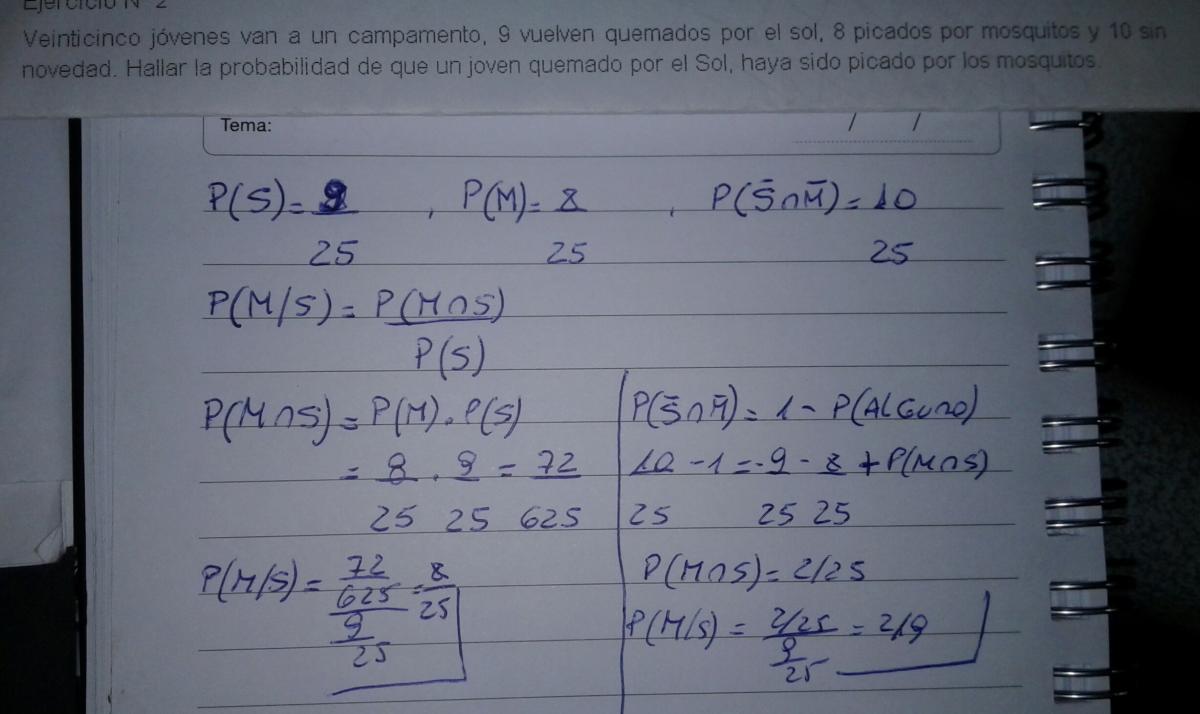 Ejercicio N° 2
Veinticinco jóvenes van a un campamento, 9 vuelven quemados por el sol, 8 picados por mosquitos y 10 sin
novedad. Hallar la probabilidad de que un joven quemado por el Sol, haya sido picado por los mosquitos.
Tema: / /
P(S) = 9/25 , P(M) = 8/25 , P(S̄∩M̄) = 10/25
P(M/S) = P(M∩S)/P(S)
P(M∩S) = P(M).P(S)
= 8/25 . 9/25 = 72/625
P(M/S) = 72/625 / 9/25 = 8/25
P(S̄∩M̄) = 1 - P(ALGUNO)
10/25 - 1 = -9/25 - 8/25 + P(M∩S)
P(M∩S) = 2/25
P(M/S) = 2/25 / 9/25 = 2/9